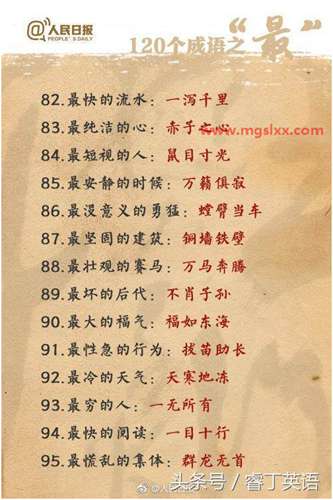 @人民日报
PEOPLE'S DAILY
120个成语之“最”
www.mgslxx.com
82.最快的流水：一泻千里
83.最纯洁的心：赤子之心
84.最短视的人：鼠目寸光
85.最安静的时候：万籁俱寂
86.最没意义的勇猛：螳臂当车
87.最坚固的建筑：铜墙铁壁
88.最壮观的赛马：万马奔腾
89.最坏的后代：不肖子孙
90.最大的福气：福如东海
91.最性急的行为：拔苗助长
92.最冷的天气：天寒地冻
93.最穷的人：一无所有
94.最快的阅读：一目十行
95.最慌乱的集体：群龙无首
@人民日报
头条号/睿丁英语